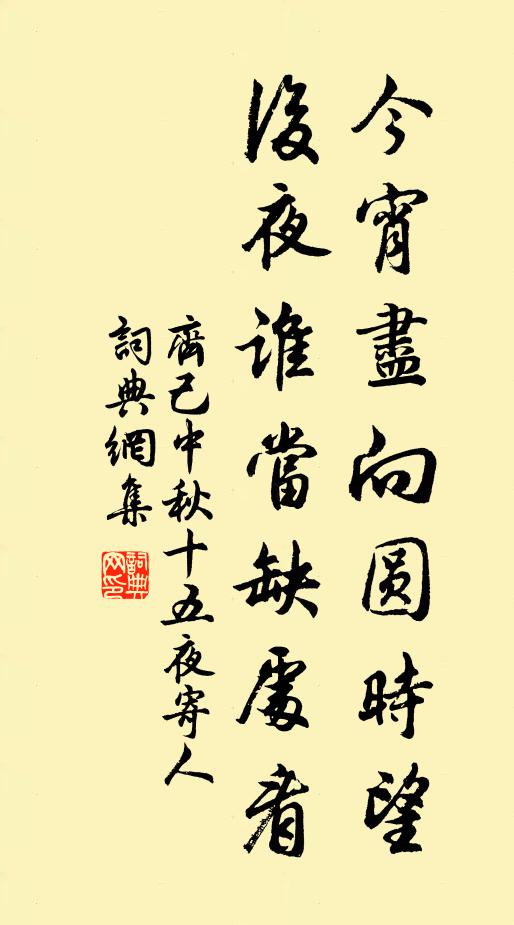 今宵盡向圓時望
後夜誰當缺處看
齊己中秋十五夜寄人
詞典網集
詞典
网印